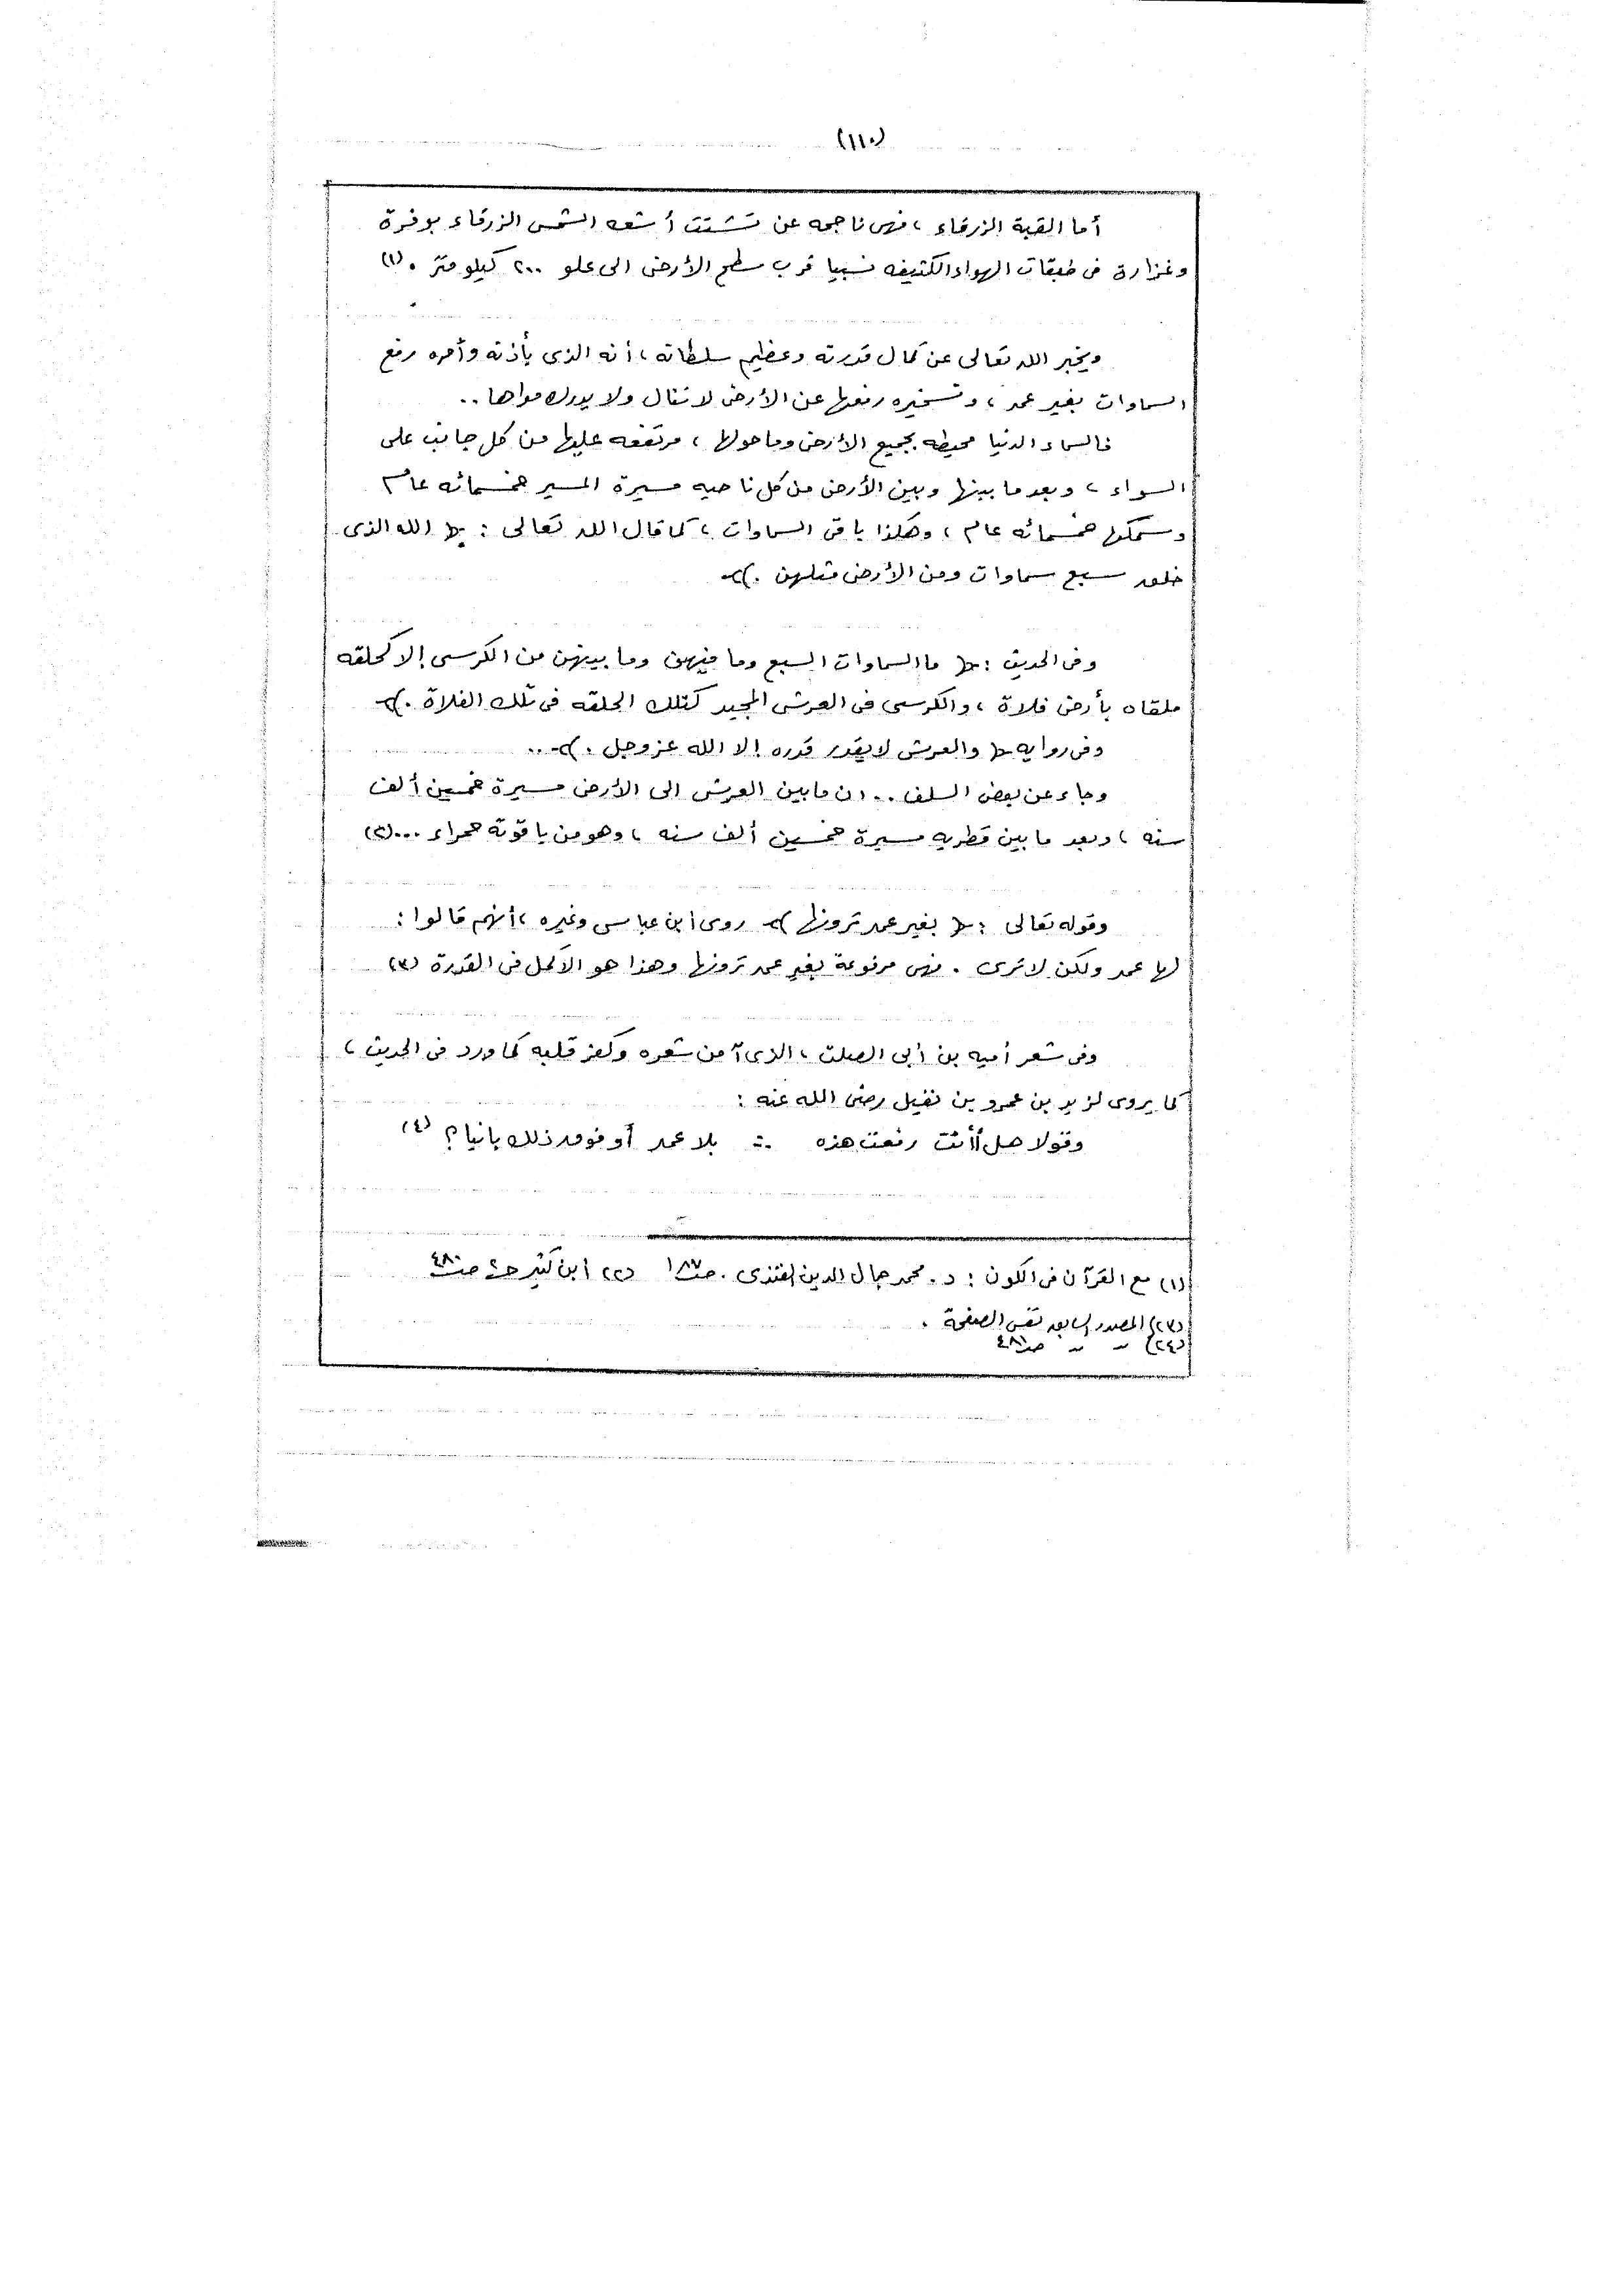 (١١٠)
أما القبة الزرقاء ، فهى ناجمه عن تشتت أشعه الشمس الزرقاء بوفرة
وغزارة فى طبقات الهواء الكثيفه نسبيا قرب سطح الأرض الى علو ٢٠٠ كيلو متر . (١)
ويخبر الله تعالى عن كمال قدرته وعظيم سلطانه ، أنه الذى بأذنه وأمره رفع
السماوات بغير عمد ، وتسخيره رفعها عن الأرض لا تنال ولا يدرك مداها ..
فالسماء الدنيا محيطه بجميع الأرض وما حولها ، مرتفعه عليها من كل جانب على
السواء ، وبعد ما بينها وبين الأرض من كل ناحيه مسيرة المسير خمسمائه عام
وسمكها خمسمائه عام ، وهكذا باقى السماوات ، كما قال الله تعالى : ﴿ الله الذى
خلق سبع سماوات ومن الأرض مثلهن . ﴾
وفى الحديث : ﴿ ما السماوات السبع وما فيهن وما بينهن من الكرسى إلا كحلقه
ملقاه بأرض فلاة ، والكرسى فى العرش المجيد كتلك الحلقه فى تلك الفلاة . ﴾
وفى روايه ﴿ والعرش لا يقدر قدره إلا الله عز وجل . ﴾ ..
وجاء عن بعض السلف .. ان ما بين العرش الى الأرض مسيرة خمسين ألف
سنه ، وبعد ما بين قطريه مسيرة خمسين ألف سنه ، وهو من ياقوته حمراء ... (٢)
وقوله تعالى : ﴿ بغير عمد ترونها ﴾ روى أبن عباس وغيره ، أنهم قالوا :
لها عمد ولكن لا ترى . فهى مرفوعة بغير عمد ترونها وهذا هو الأكمل فى القدرة (٣)
وفى شعر أميه بن أبى الصلت ، الذى آمن شعره وكفر قلبه كما ورد فى الحديث ،
كما يروى لزيد بن عمرو بن نفيل رضى الله عنه :
وقولا هل أأنت رفعت هذه ∴ بلا عمد أو فوق ذلك بانيا ؟ (٤)
(١) مع القرآن فى الكون : د. محمد جمال الدين الفندى . صـ ١٨٧ (٢) أبن كثير حـ ٢ صـ ٤٨٠
(٣) المصدر السابق نفس الصفحة .
(٤) 〃 〃 صـ ٤٨١